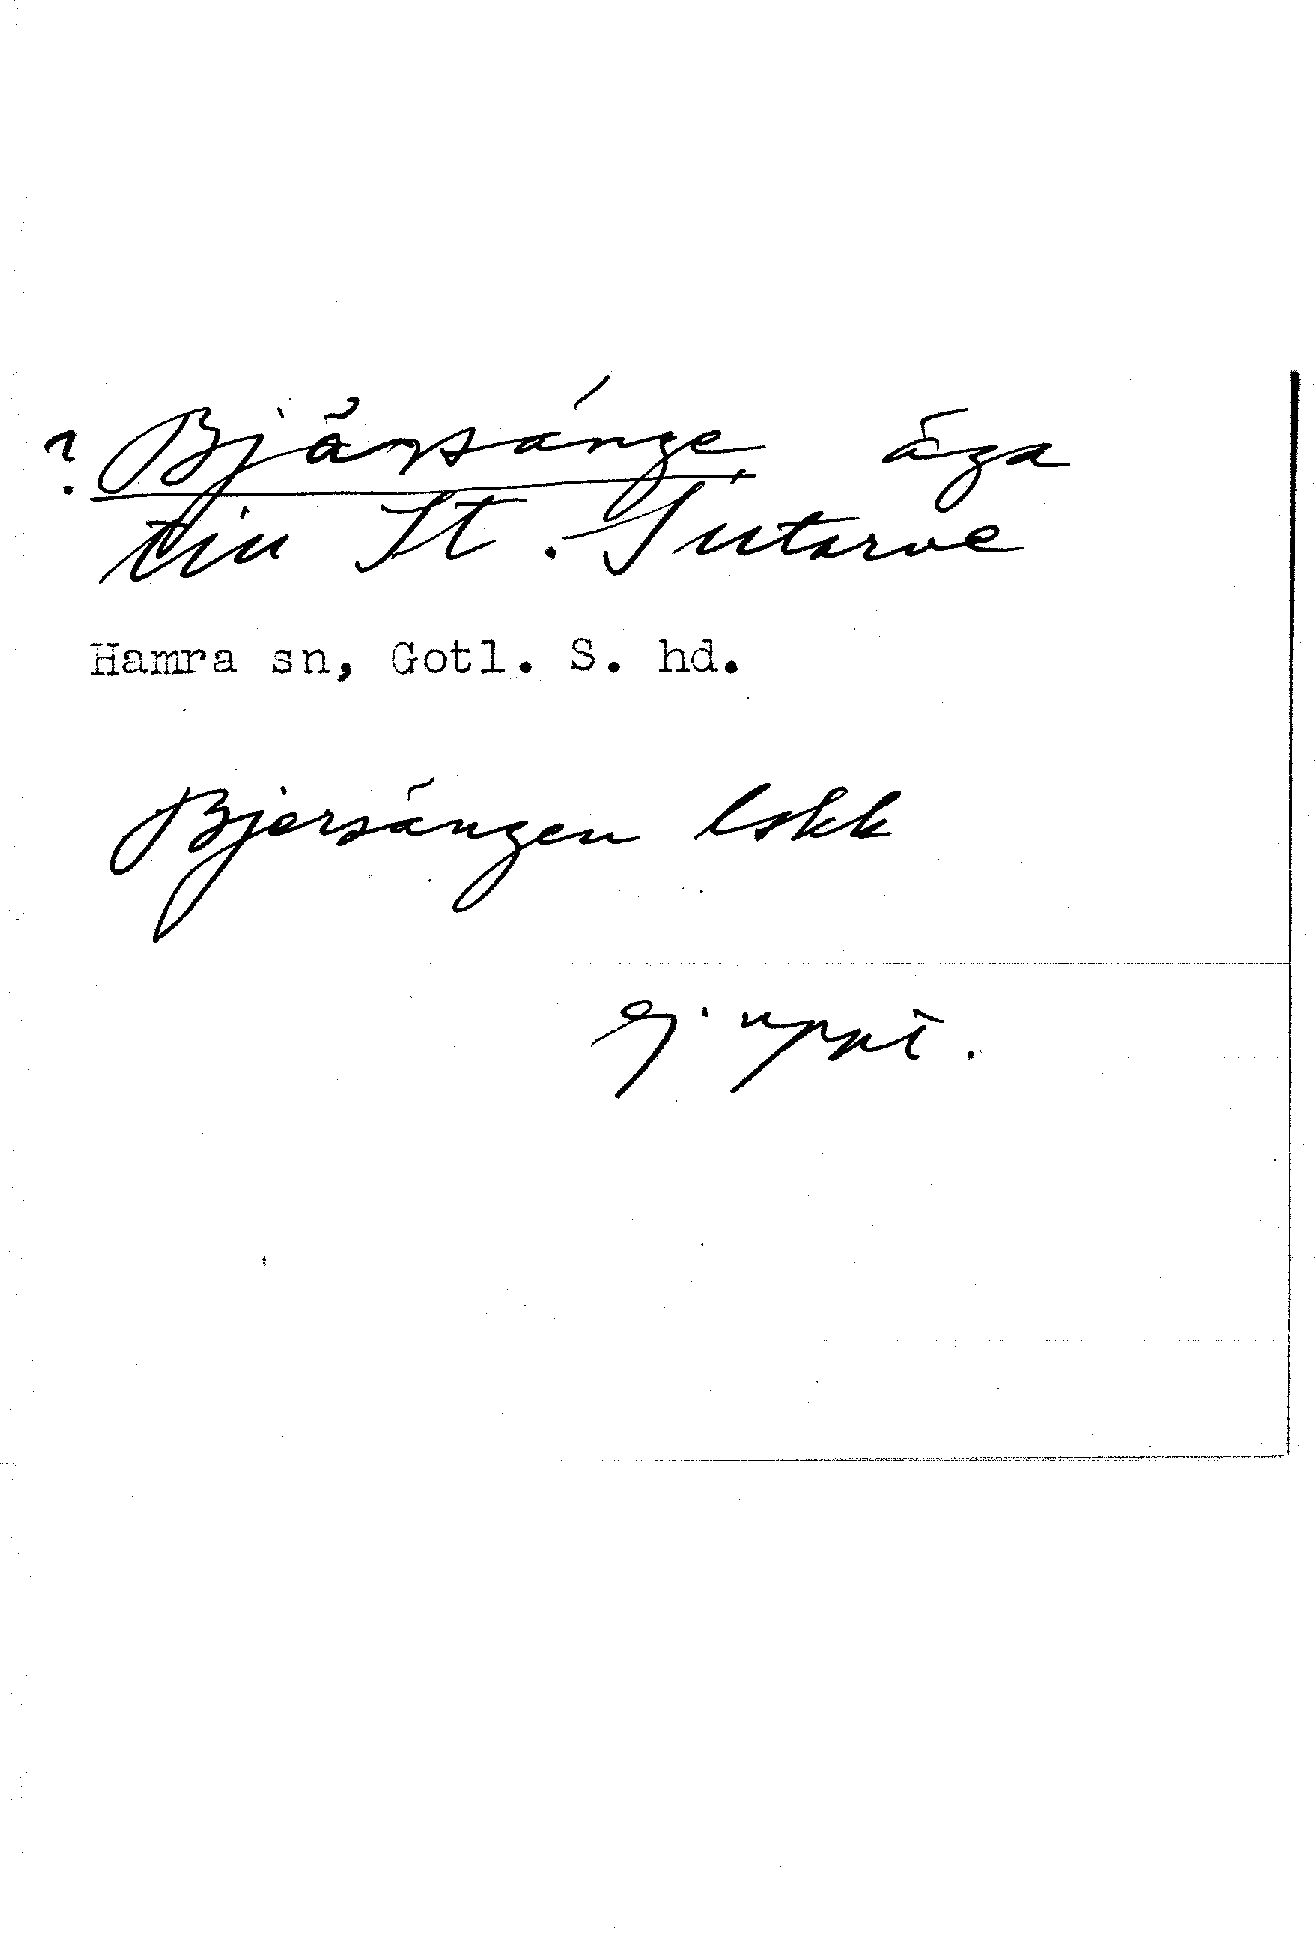 ? Bjärsänge, äga
till St. Sutarve
Hamra sn, Gotl. S. hd.
Bjersängen lskk
ej uppt.